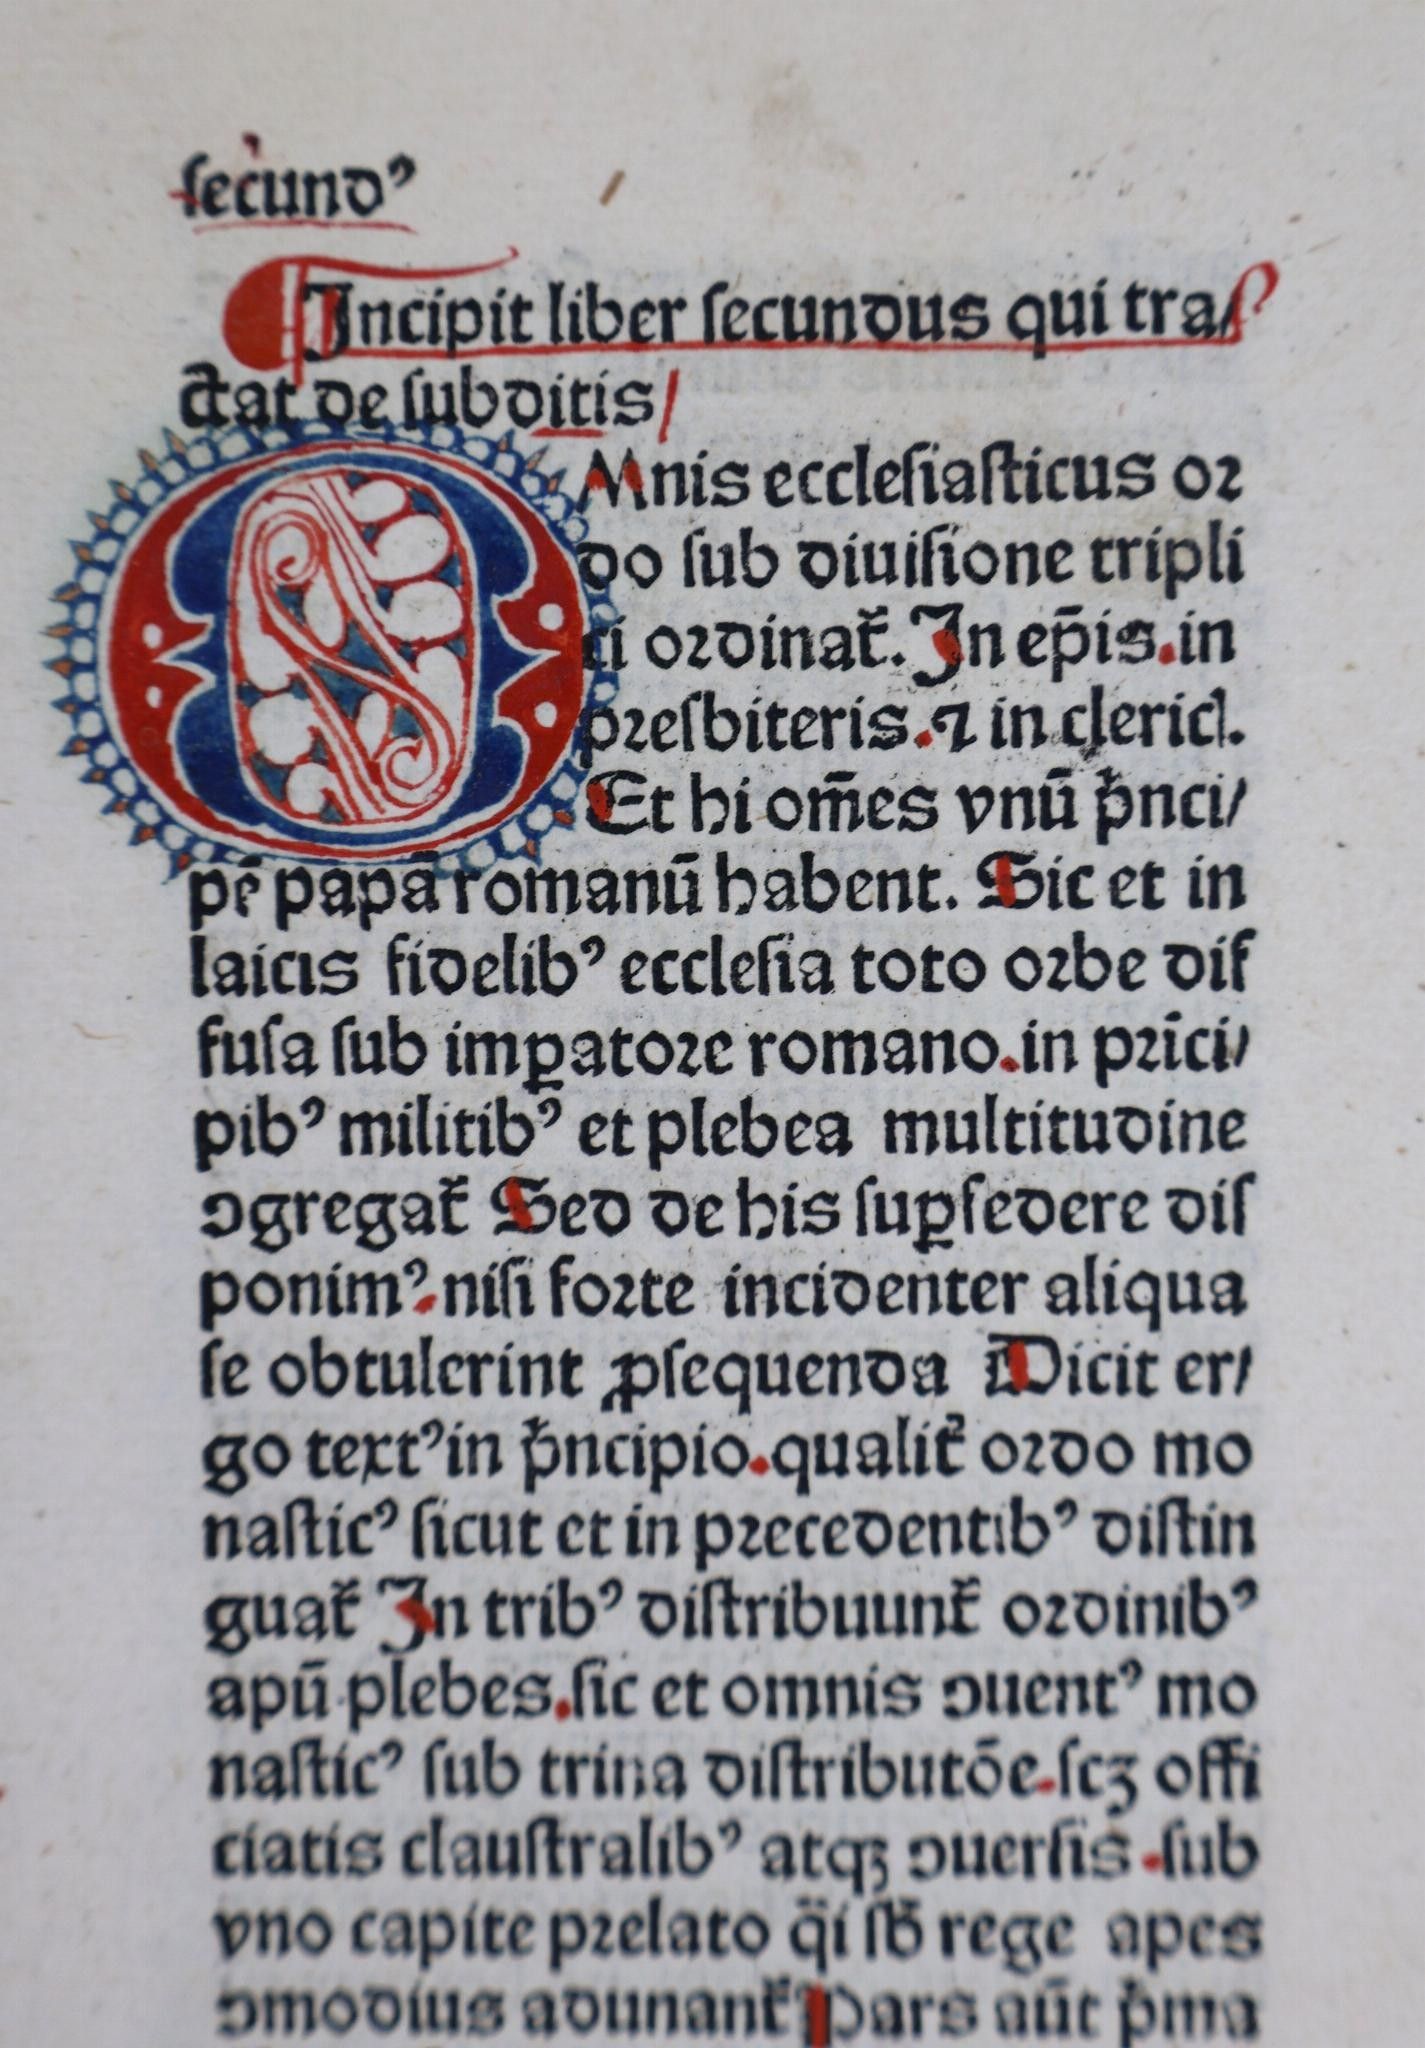 ſecundꝰ
Incipit liber ſecundus qui tra/
ctat de ſubditis/
OMnis eccleſiaſticus oꝛ
do ſub diuiſione tripli
ci oꝛdinat᷑. In ep̄is.in
pꝛeſbiteris.⁊ in clericꝭ.
Et hi om̄es vnū pͥnci/
pē papā romanū habent. Sic et in
laicis fidelibꝰ eccleſia toto oꝛbe dif
fuſa ſub imꝑatoꝛe romano.in pꝛīci/
pibꝰ militibꝰ et plebea multitudine
ꝯgregat᷑ Sed de his ſuꝑſedere diſ
ponimꝰ.niſi foꝛte incidenter aliqua
ſe obtulerint ꝓſequenda Dicit er/
go textꝰ in pͥncipio.qualit᷑ oꝛdo mo
naſticꝰ ſicut et in pꝛecedentibꝰ diſtin
guat᷑ In tribꝰ diſtribuunt᷑ oꝛdinibꝰ
apū plebes.ſic et omnis ꝯuentꝰ mo
naſticꝰ ſub trina diſtributōe.ſcꝫ offi
ciatis clauſtralibꝰ atqꝫ ꝯuerſis.ſub
vno capite pꝛelato q̈i ſb̄ rege apes
ꝯmodius adunant᷑ Pars aūt pͥma